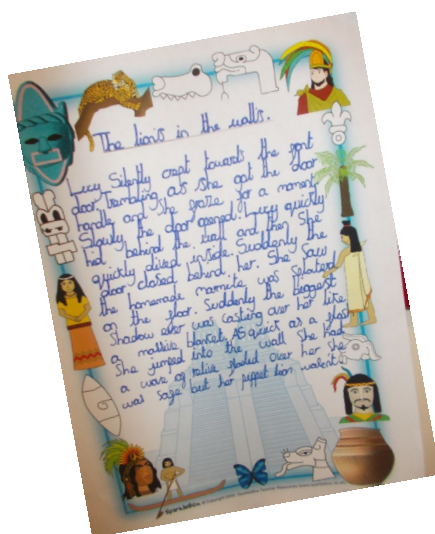 The lions in the walls.
Lucy Silently crept towards the front
door. Trembling as she got the door
handle and she froze for a moment
Slowly the door opened. Lucy quickly
hid behind the wall and then she
quickly dived inside. Suddenly the
door closed behind her. She saw
the homemade marmite was splatted
on the floor. Suddenly the biggest
shadow ever was casting over her like
a massive blanket. As quick as a flash
She jumped into the wall She had
a wave of relive flooled over her she
was safe but her puppet lion wasent.